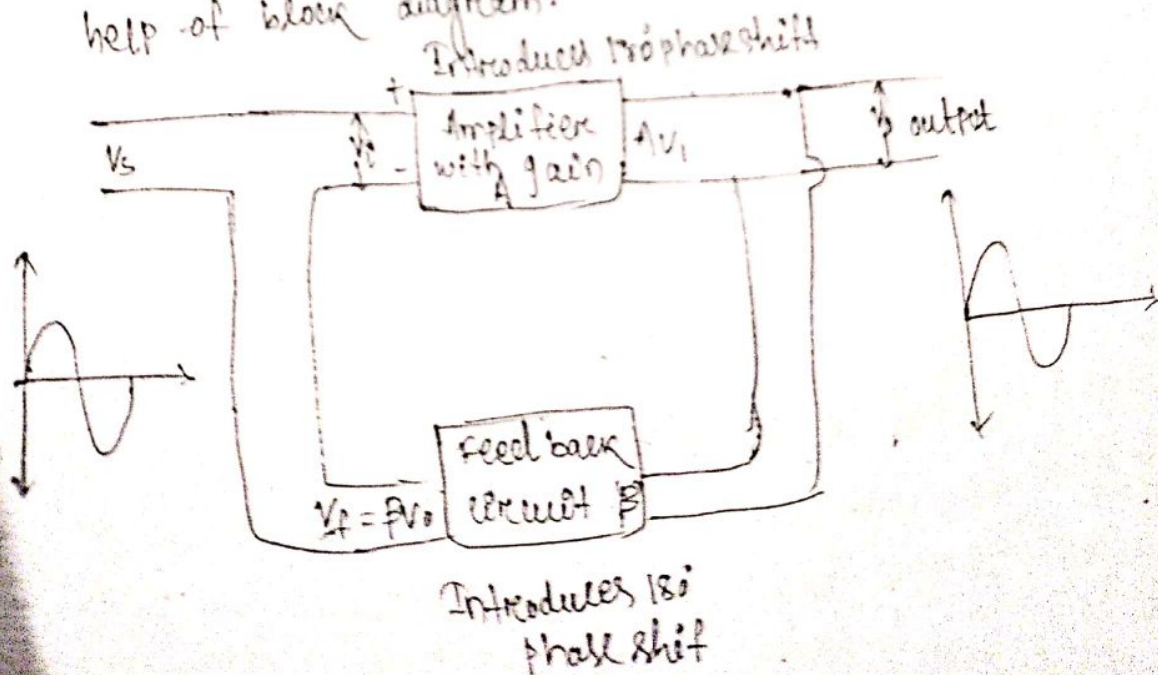 help of block diagram.
Introduces 180° phase shift
+
Vs
Vi
-
Amplifier
with gain
A
AVi
Vo output
Feed back
circuit β
Vf = βVo
Introduces 180°
phase shif